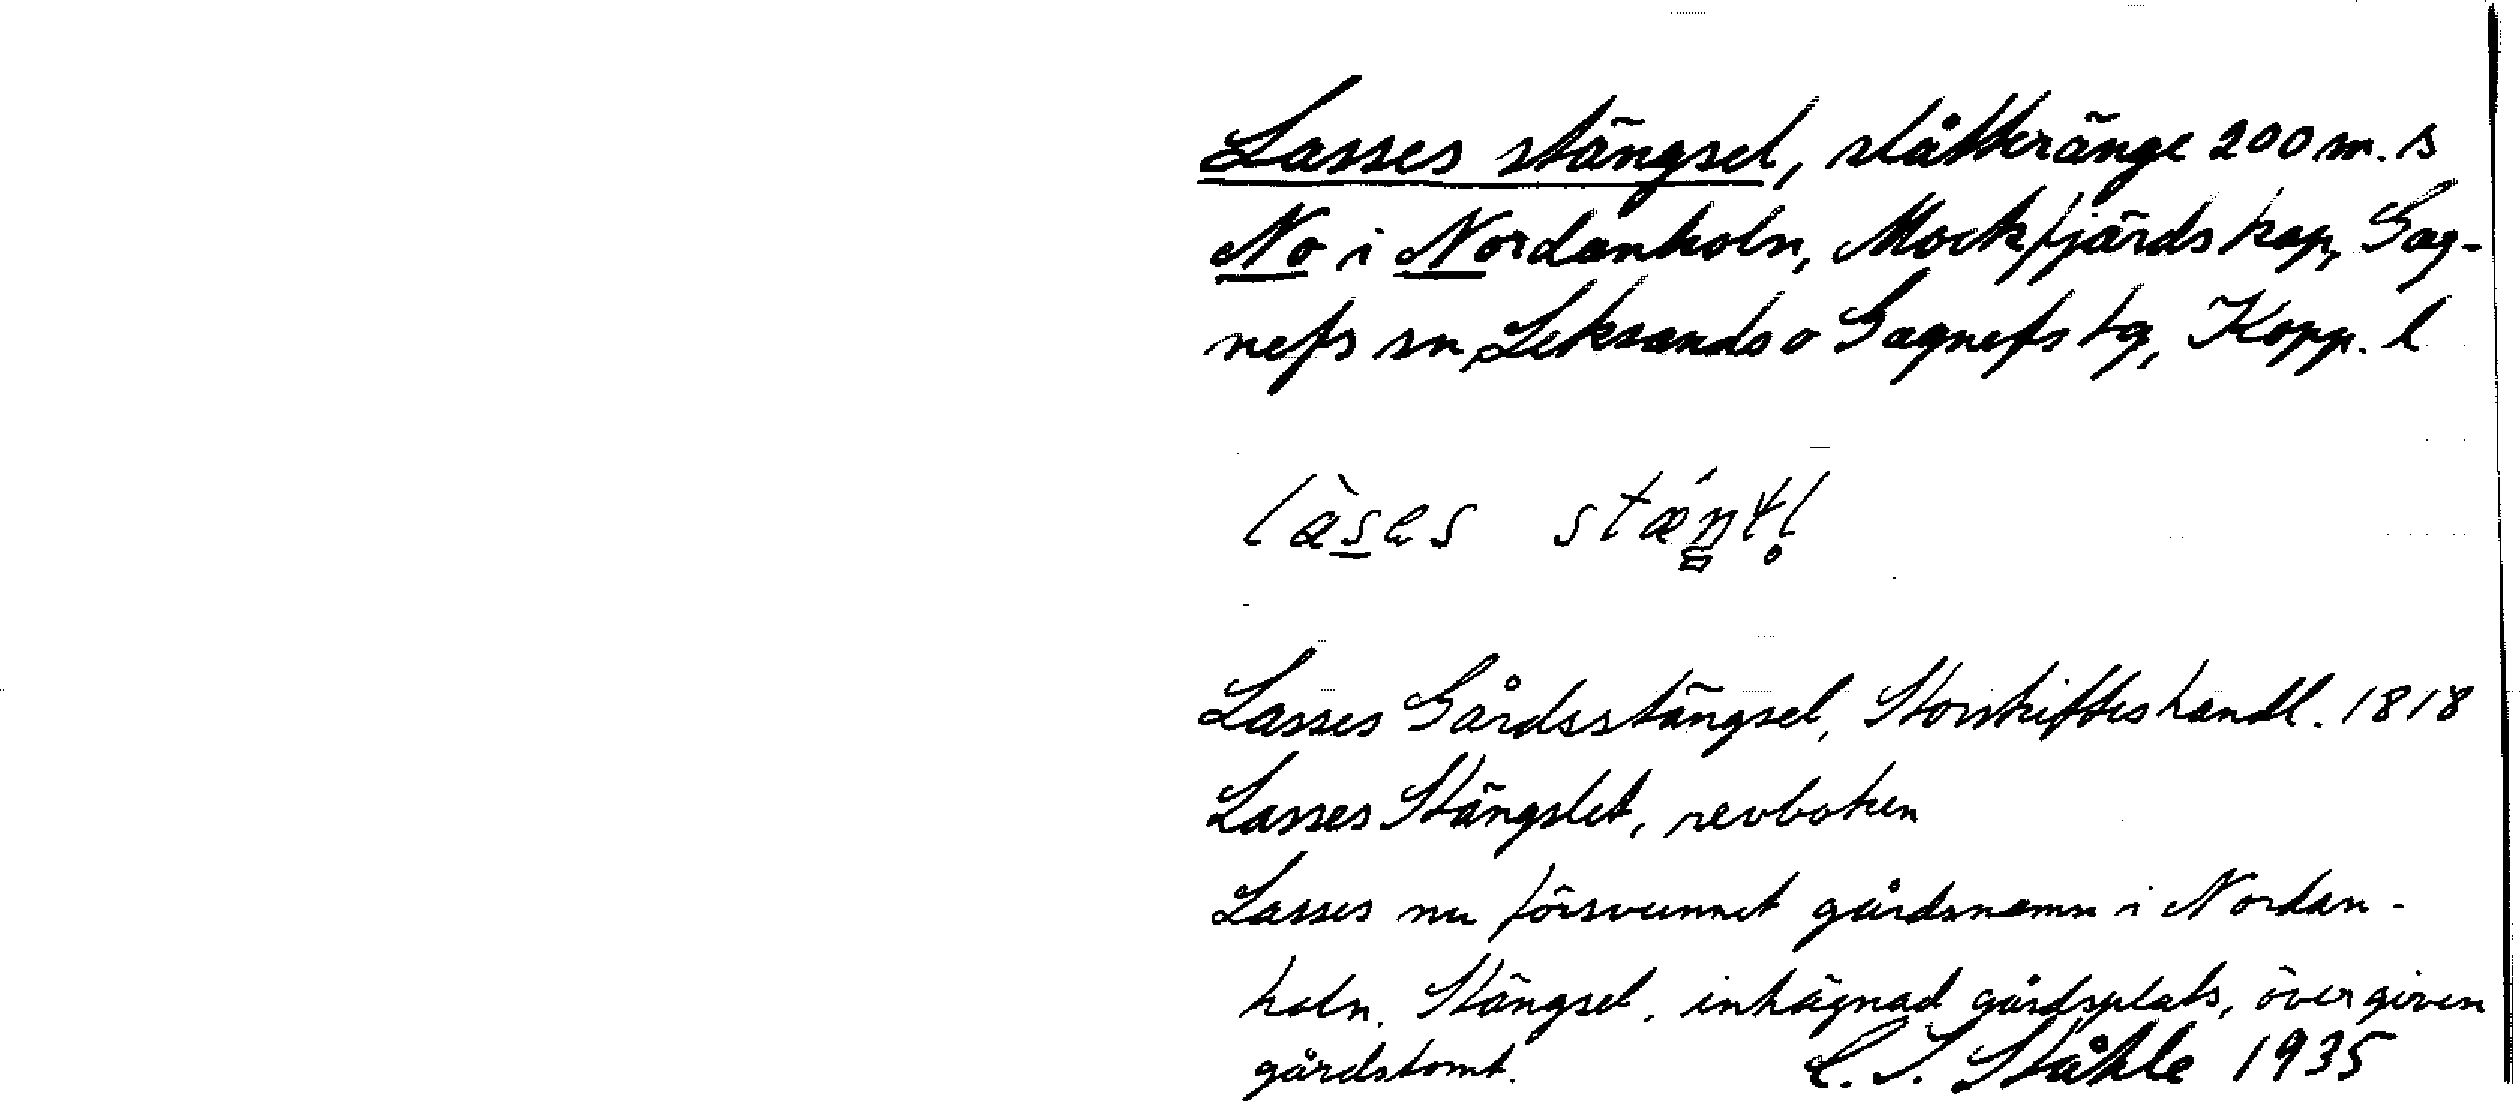 Lasses stängsel, slåtteränge 200 m. s
No i Nordanholn, Mockfjärds kap, Gag-
nefs sn, Leksands o Gagnefs tg, Kopp. l
Lasses Gårdsstängsel, Storskifteshandl. 1818
Lasses Stängslet, revboken
Lasses nu försvunnet gårdsnamn i Nordan-
holn. Stängsel, inhägnad gårdsplats, övergiven
gårdstomt. C. I. Ståhle 1935